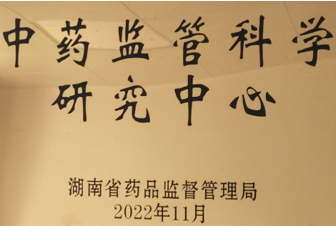 中药监管科学
研究中心
湖南省药品监督管理局
2022年11月